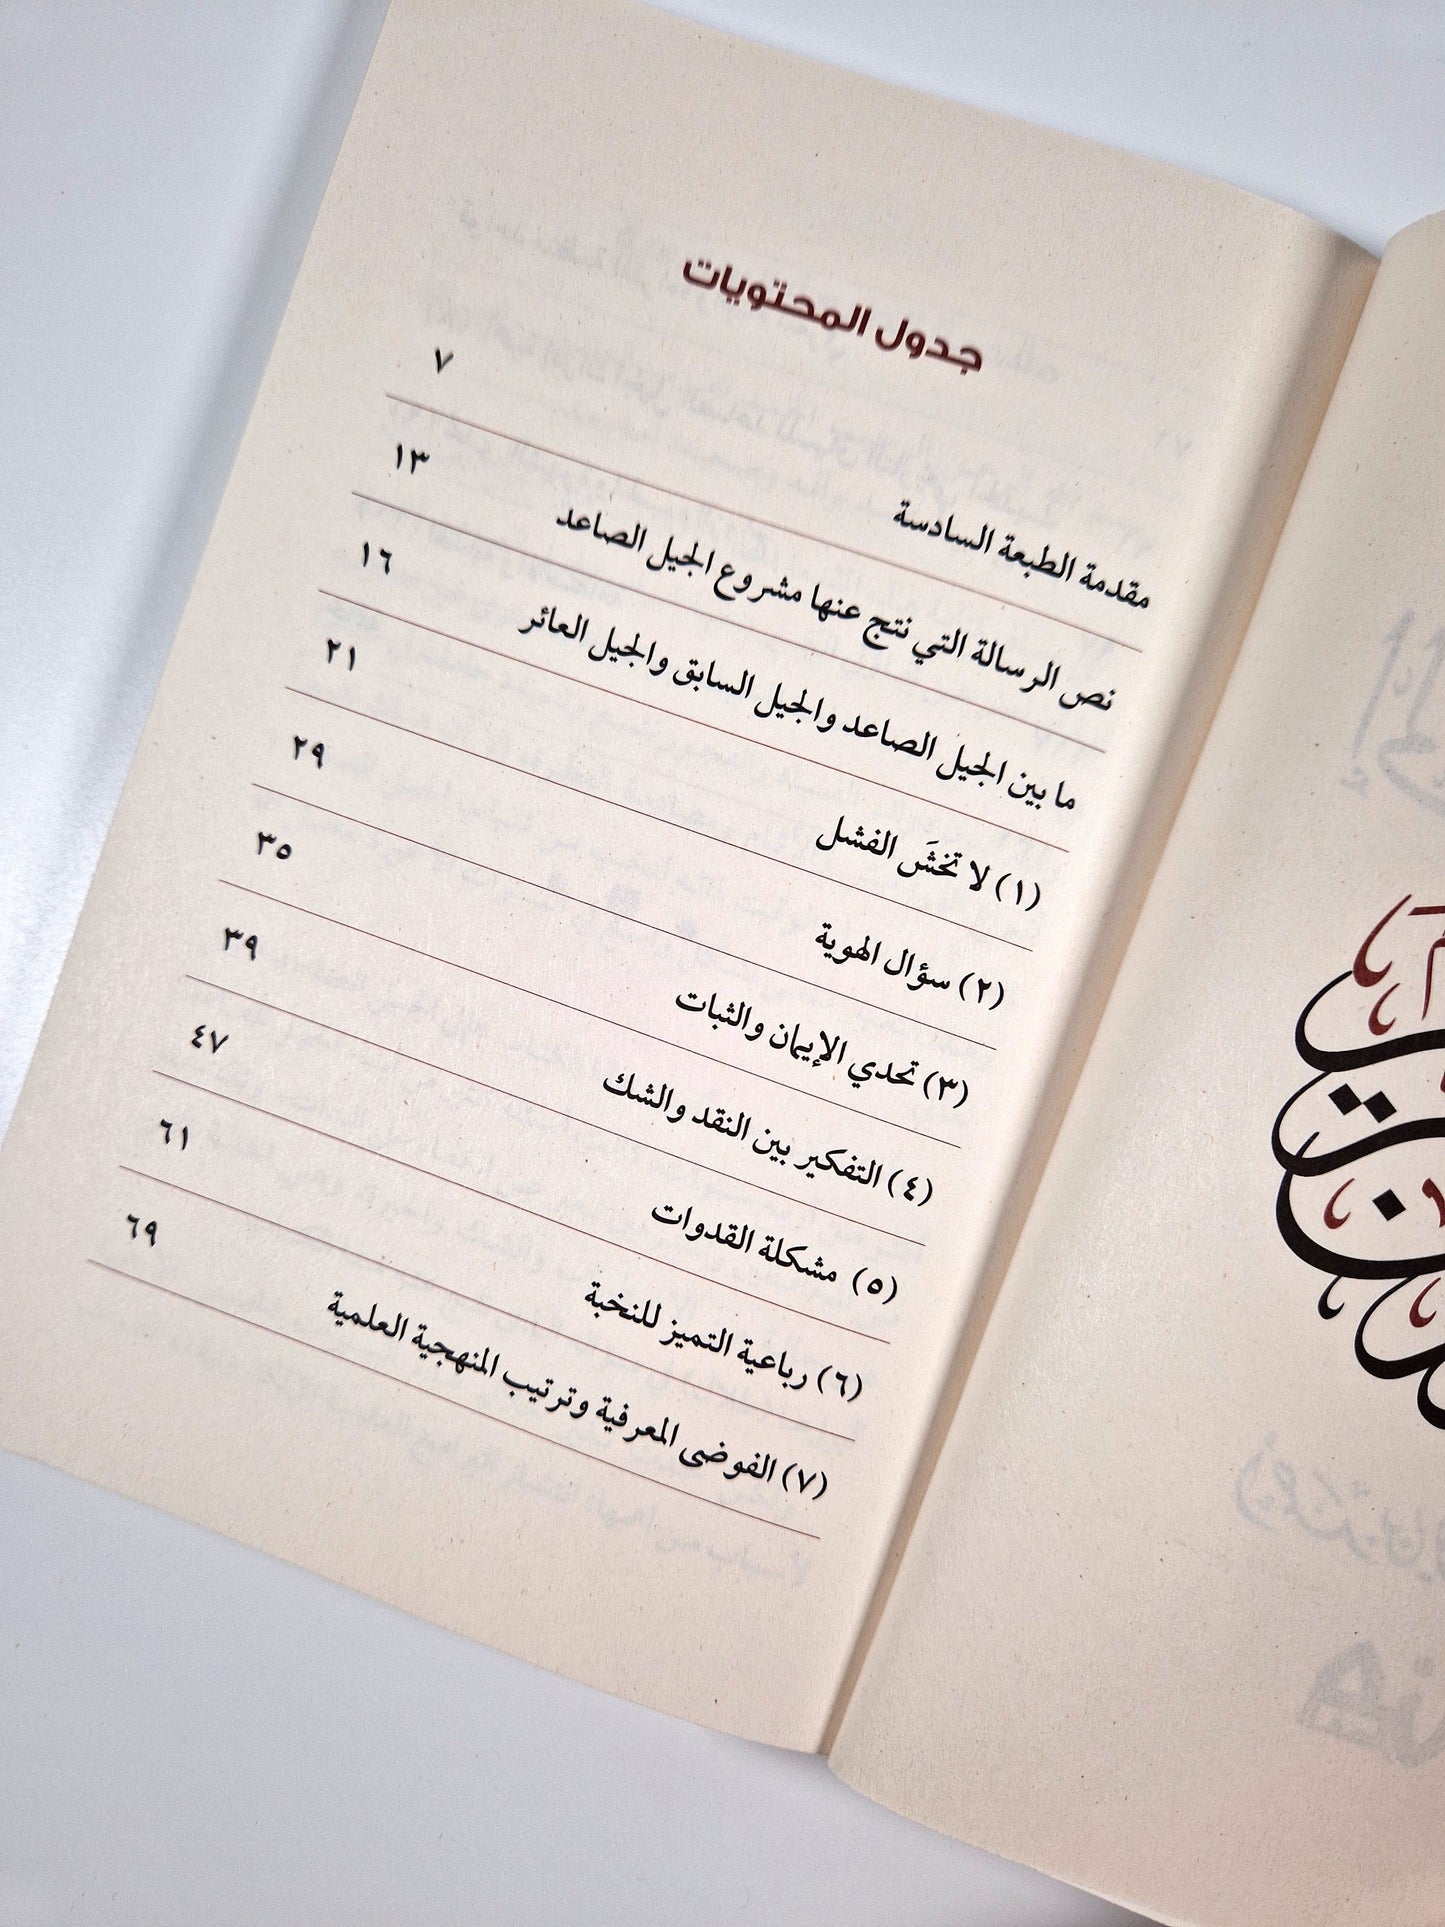 جدول المحتويات
مقدمة الطبعة السادسة ٧
نص الرسالة التي نتج عنها مشروع الجيل الصاعد ١٣
ما بين الجيل الصاعد والجيل السابق والجيل العائر ١٦
(١) لا تخشَ الفشل ٢١
(٢) سؤال الهوية ٢٩
(٣) تحدي الإيمان والثبات ٣٥
(٤) التفكير بين النقد والشك ٣٩
(٥) مشكلة القدوات ٤٧
(٦) رباعية التميز للنخبة ٦١
(٧) الفوضى المعرفية وترتيب المنهجية العلمية ٦٩